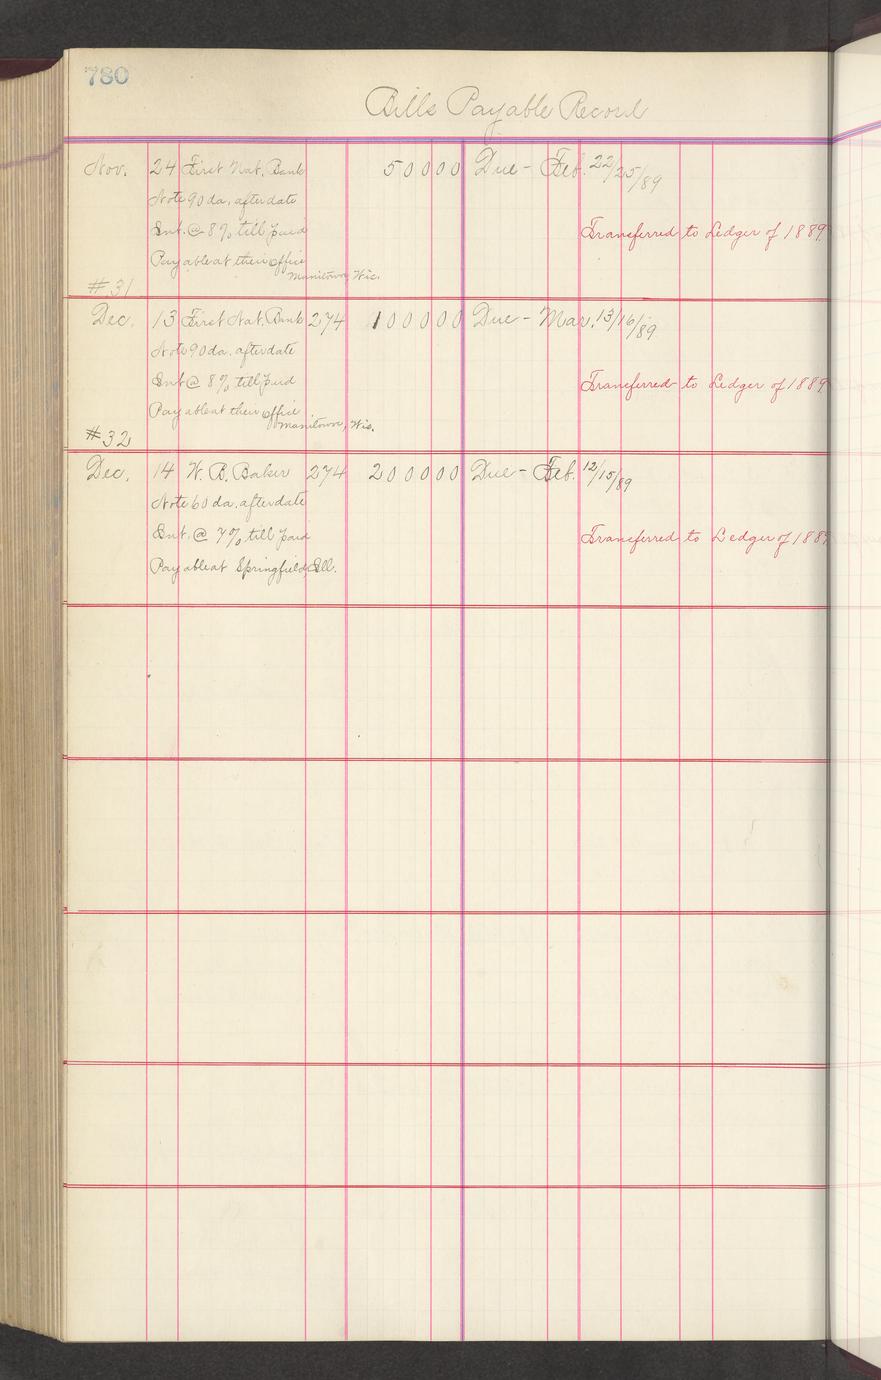 780
Bills Payable Record
Nov. 24 First Nat. Bank 50000 Due - Feb. 22/25/89
Note 90 da. after date
Int. @ 8% till paid Transferred to Ledger of 1889
Payable at their office
Manitowoc, Wis.
#31
Dec. 13 First Nat. Bank 274 100000 Due - Mar. 13/16/89
Note 90 da. after date
Int @ 8% till paid Transferred to Ledger of 1889
Payable at their office
Manitowoc, Wis.
#32
Dec. 14 W. B. Baker 274 200000 Due - Feb. 12/15/89
Note 60 da. after date
Int. @ 7% till paid Transferred to Ledger of 1889
Payable at Springfield, Ill.